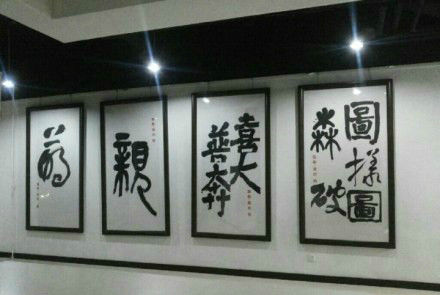 萌
親
喜大
普奔
圖樣圖
森破